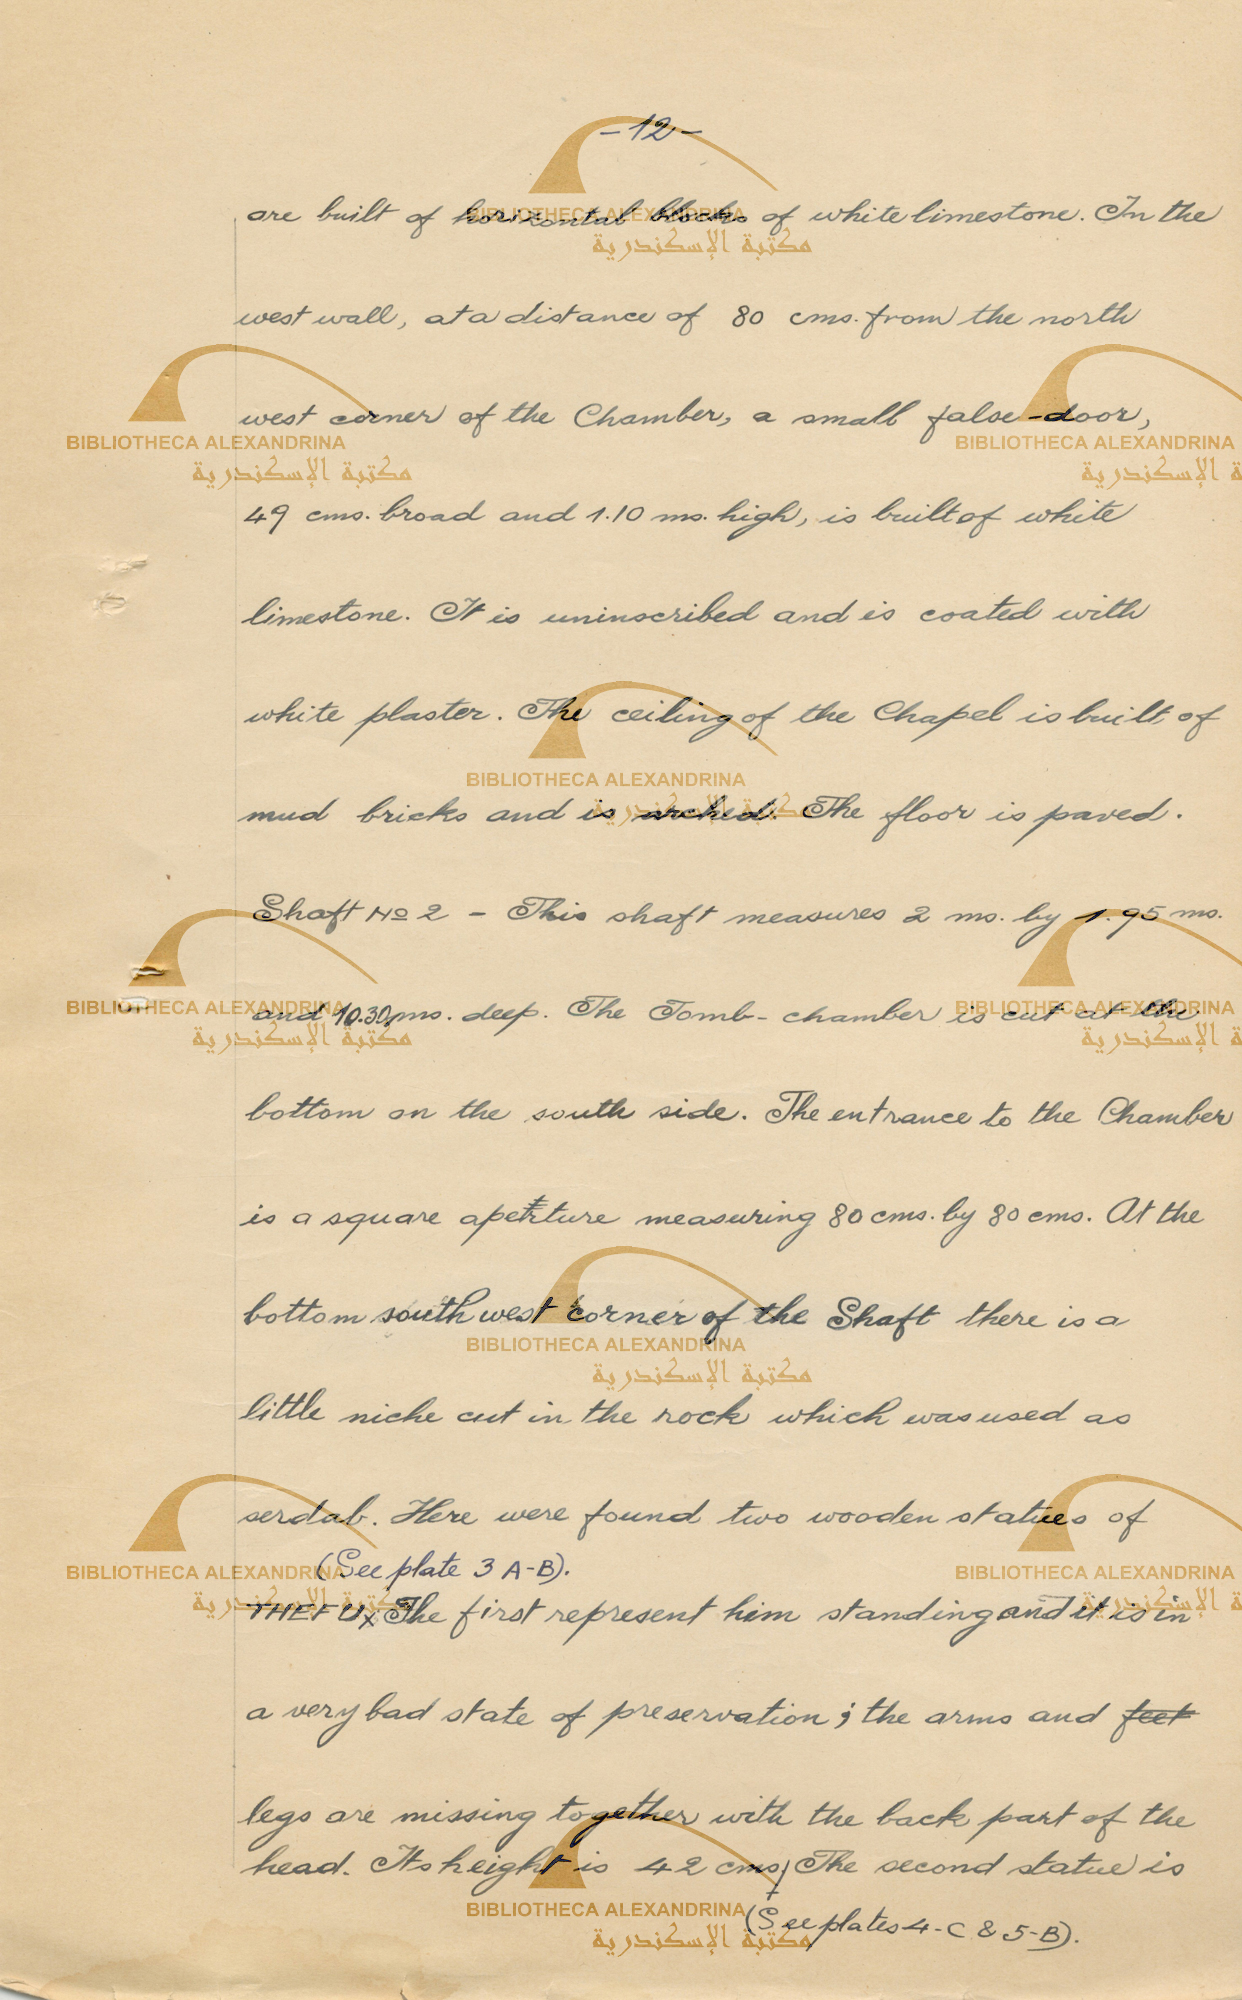 - 12 -
are built of horizontal blocks of white limestone. In the
west wall, at a distance of 80 cms. from the north
west corner of the Chamber, a small false-door,
49 cms. broad and 1.10 ms. high, is built of white
limestone. It is uninscribed and is coated with
white plaster. The ceiling of the Chapel is built of
mud bricks and is arched. The floor is paved.
Shaft No 2 - This shaft measures 2 ms. by 1.95 ms.
and 10.30 ms. deep. The Tomb-chamber is cut at the
bottom on the south side. The entrance to the Chamber
is a square aperture measuring 80 cms. by 80 cms. At the
bottom south west corner of the Shaft there is a
little niche cut in the rock which was used as
serdab. Here were found two wooden statues of
(See plate 3 A-B).
THEFU x The first represent him standing and it is in
a very bad state of preservation; the arms and feet
legs are missing together with the back part of the
head. Its height is 42 cms. The second statue is
(See plates 4-C & 5-B).
BIBLIOTHECA ALEXANDRINA
مكتبة الإسكندرية
BIBLIOTHECA ALEXANDRINA
مكتبة الإسكندرية
BIBLIOTHECA ALEXANDRINA
مكتبة الإسكندرية
BIBLIOTHECA ALEXANDRINA
مكتبة الإسكندرية
BIBLIOTHECA ALEXANDRINA
مكتبة الإسكندرية
BIBLIOTHECA ALEXANDRINA
مكتبة الإسكندرية
BIBLIOTHECA ALEXANDRINA
مكتبة الإسكندرية
BIBLIOTHECA ALEXANDRINA
مكتبة الإسكندرية
BIBLIOTHECA ALEXANDRINA
مكتبة الإسكندرية
BIBLIOTHECA ALEXANDRINA
مكتبة الإسكندرية